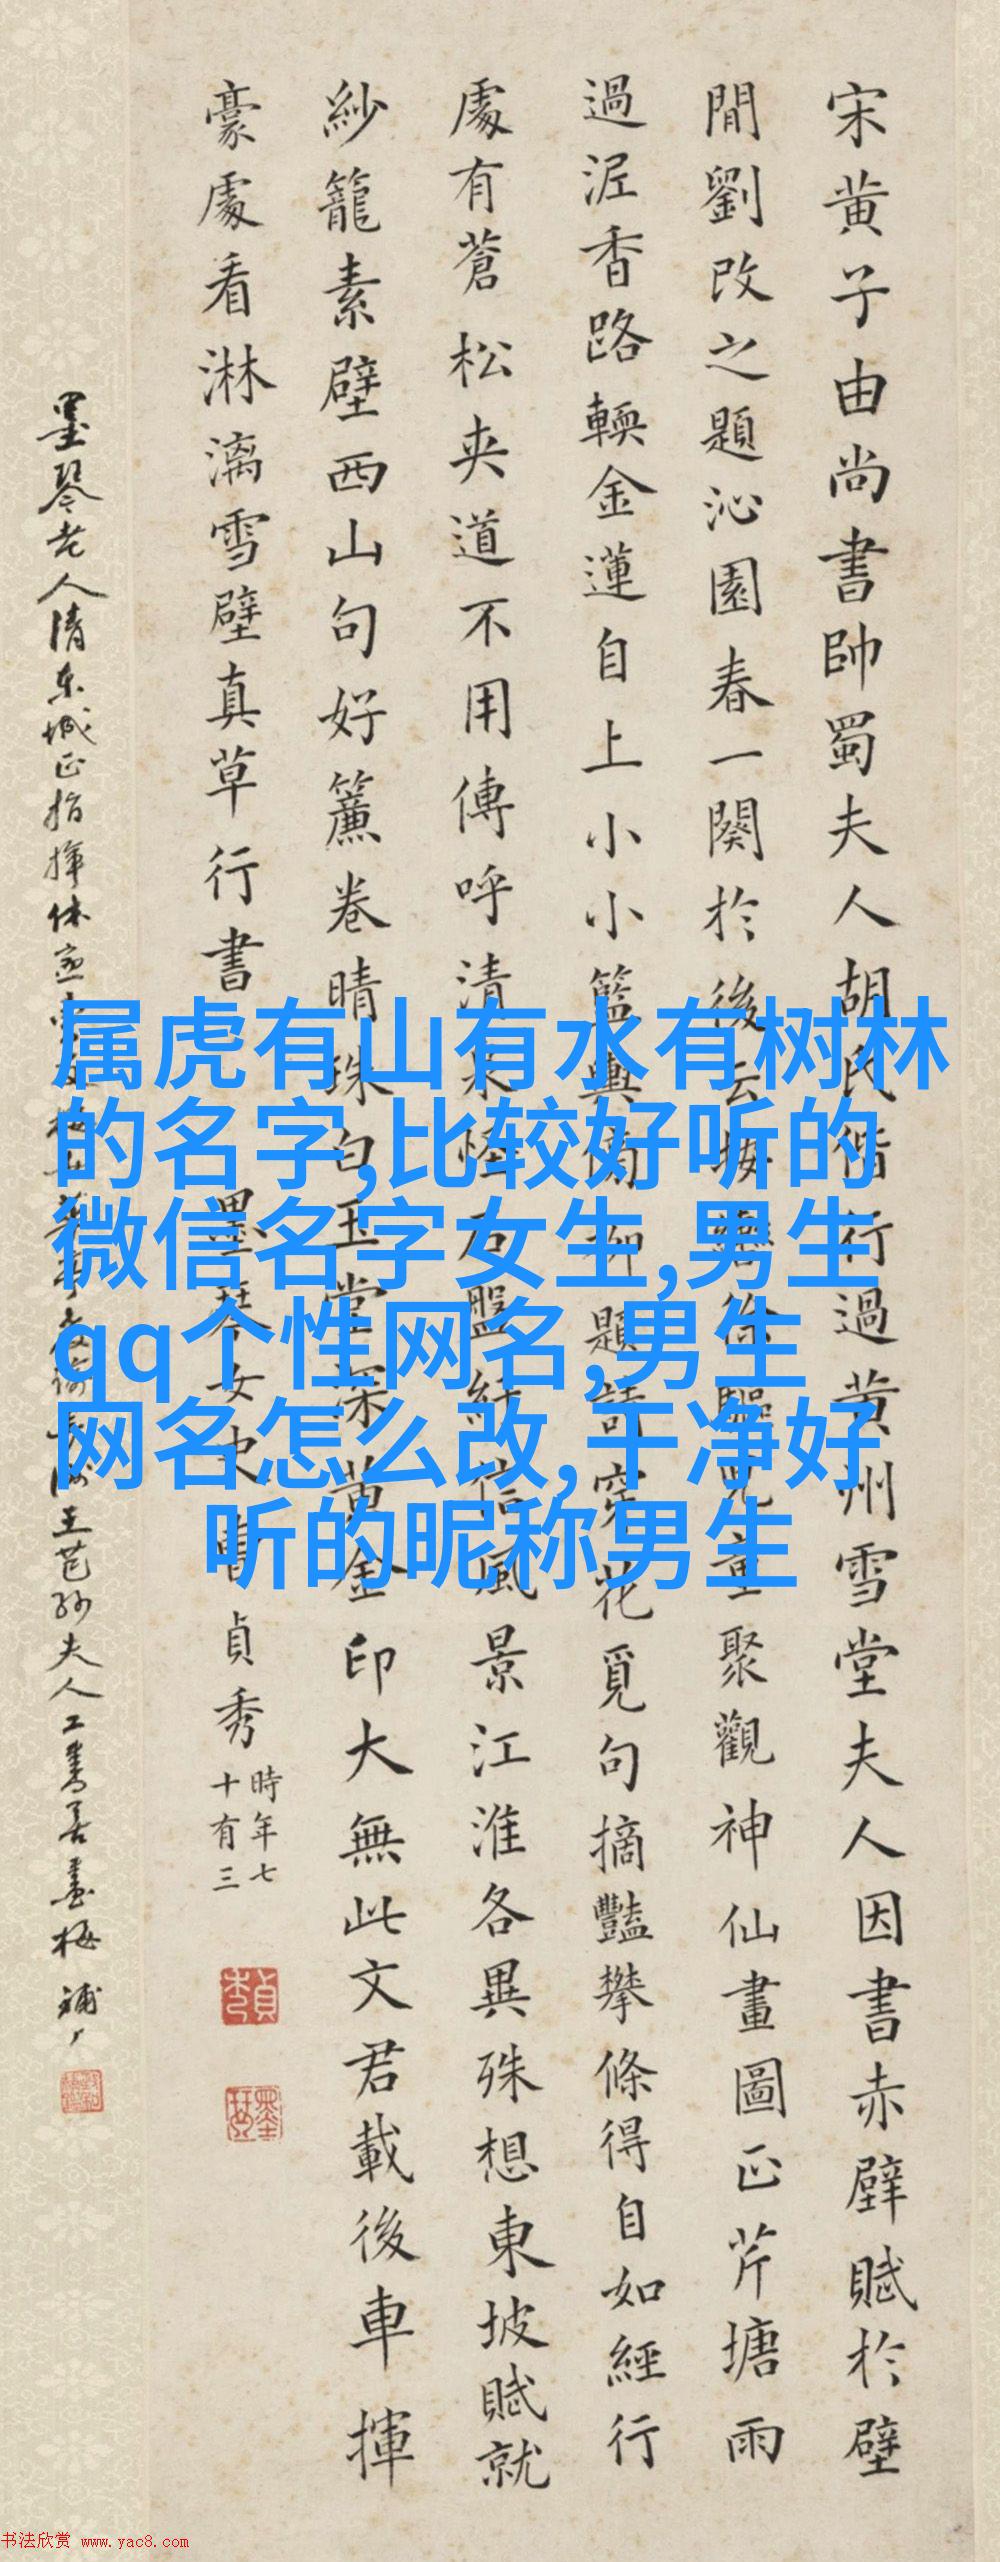 宋黄子由尚書帥蜀夫人胡氏偕行過黄州雪堂夫人因書赤壁賦於壁
間劉改之題沁園春一闋於後云按轡徐驅兒童聚觀神仙畫圖正芹塘雨
過泥香路輭金蓮自上小小籃輿傍柳題詩穿花覓句摘豔攀條得自如經行
處有蒼松夾道不用傳呼清泉怪石盤紆信風景江淮各異殊想東坡賦就
紗籠素壁西山句好簾卷晴珠白玉堂深黄金印大無此文君載後車揮
豪處看淋漓雪壁真草行書
墨琴女史曹貞秀
時年七
十有三
墨琴老人清東城正指揮休王芑孙夫人工書善畫梅
属虎有山有水有树林
的名字,比较好听的
微信名字女生,男生
qq个性网名,男生
网名怎么改,干净好
听的昵称男生
书法欣赏 www.yac8.com